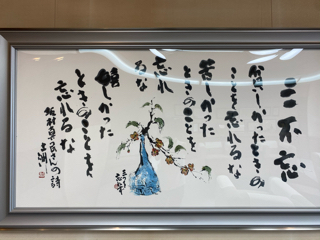 三不忘
貧しかったときの
ことを忘れるな
苦しかった
ときのことを
忘れ
るな
嬉しかった
ときのことを
忘れるな
坂村真民さんの詩